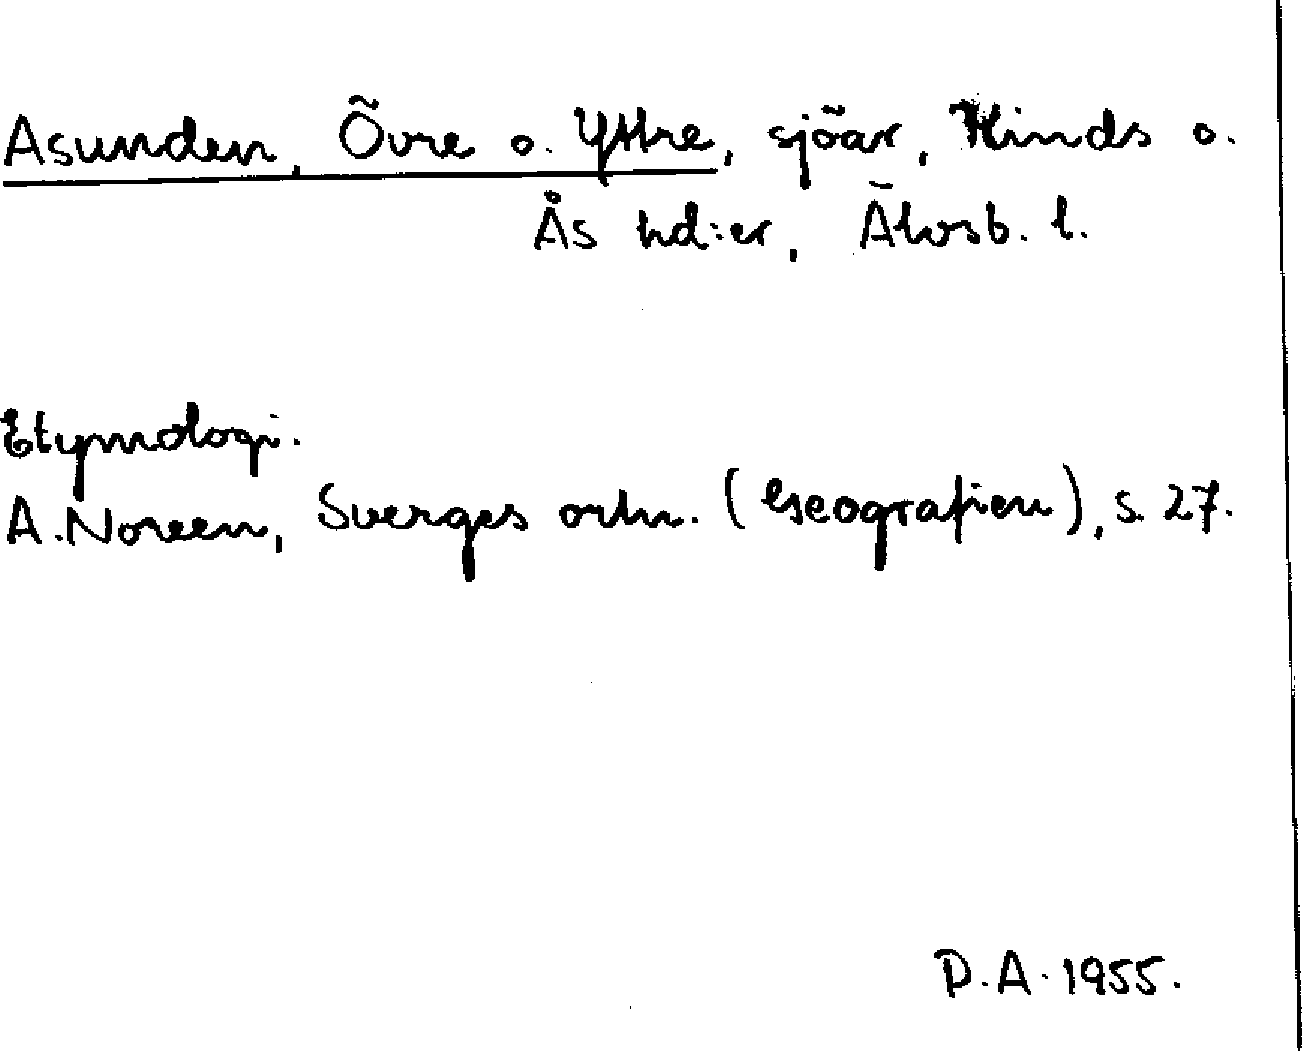 Asunden, Övre o. Yttre, sjöar, Kinds o.
Ås hd:er, Älvsb. l.
Etymologi.
A. Noreen, Sverges ortn. (Geografien), s. 27.
P.A. 1955.